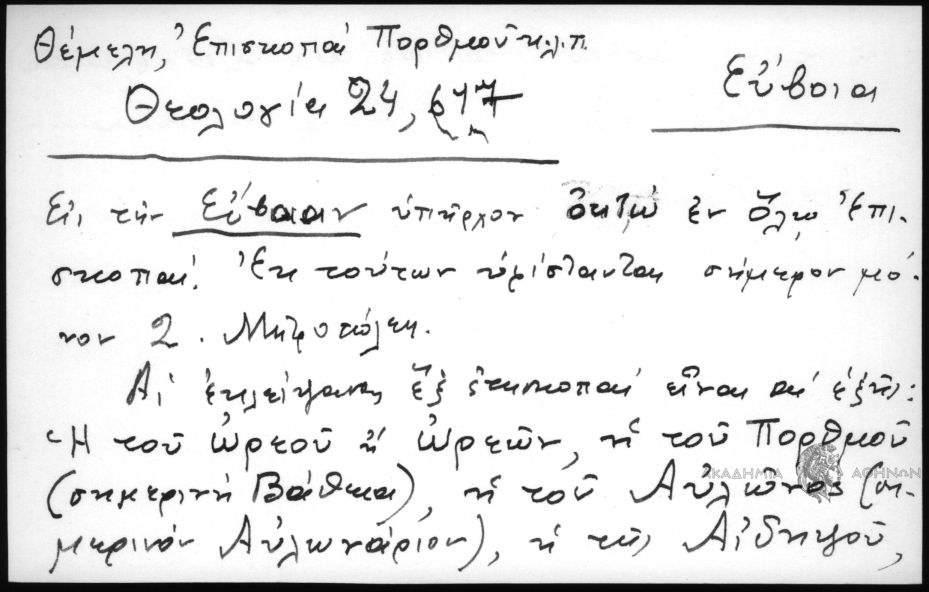 Θέμελη, Ἐπισκοπαί Πορθμοῦ κ.λ.π.
Θεολογία 24, 617
Εὔβοια
Εἰς τὴν Εὔβοιαν ὑπῆρχον ὀκτὼ ἐν ὅλῳ Ἐπι-
σκοπαί. Ἐκ τούτων ὑφίστανται σήμερον μό-
νον 2. Μητροπόλεις.
Αἱ ἐκλείψασαι ἕξ ἐπισκοπαί εἶναι αἱ ἑξῆς:
Ἡ τοῦ Ὠρεοῦ ἢ Ὠρεῶν, ἡ τοῦ Πορθμοῦ
(σημερινή Βάθεια), ἡ τοῦ Αὐλῶνος (ση-
μερινόν Αὐλωνάριον), ἡ τῆς Αἰδηψοῦ,
ΑΚΑΔΗΜΙΑ ΑΘΗΝΩΝ